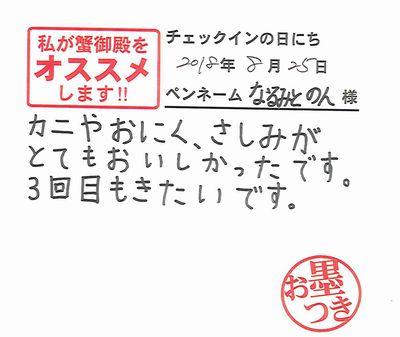 私が蟹御殿を
オススメ
します!!
チェックインの日にち
2018年 8月25日
ペンネーム なるみとのん 様
カニやおにく、さしみが
とてもおいしかったです。
3回目もきたいです。
お墨つき